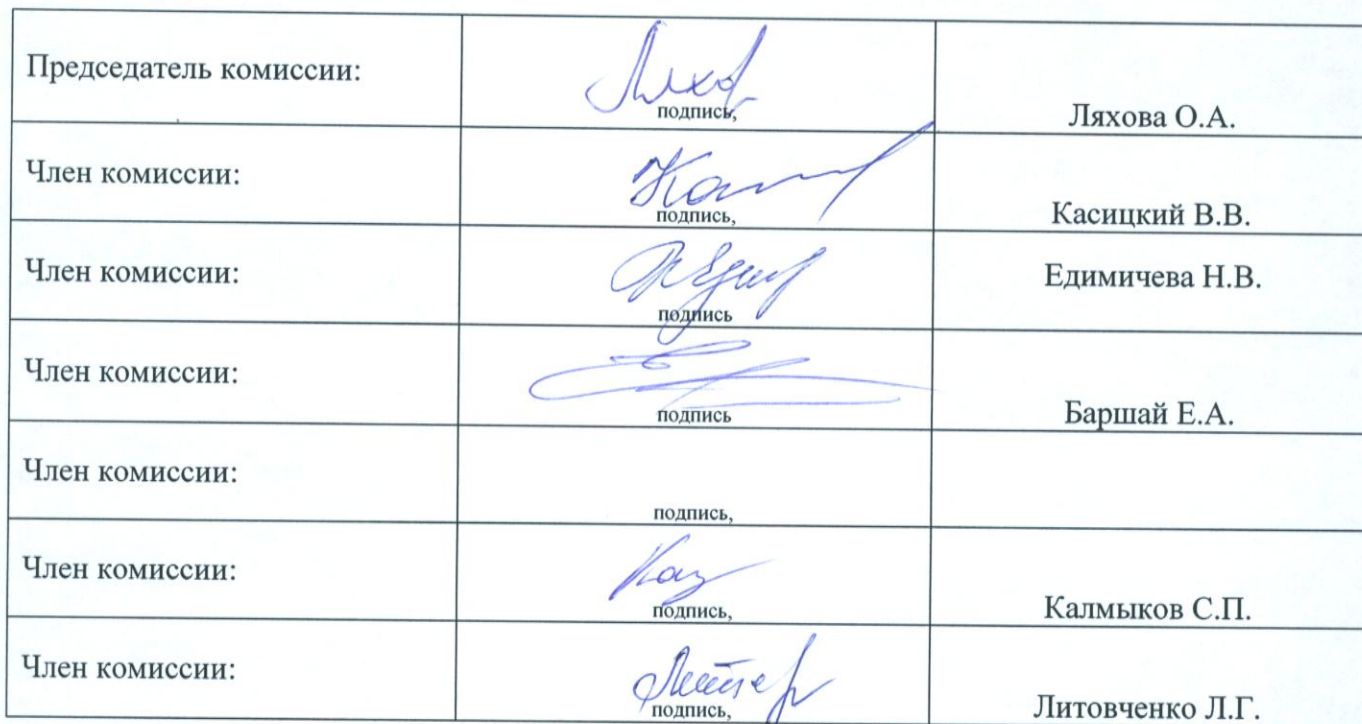 Председатель комиссии:
подпись,
Ляхова О.А.
Член комиссии:
подпись,
Касицкий В.В.
Член комиссии:
подпись
Едимичева Н.В.
Член комиссии:
подпись
Баршай Е.А.
Член комиссии:
подпись,
Член комиссии:
подпись,
Калмыков С.П.
Член комиссии:
подпись,
Литовченко Л.Г.